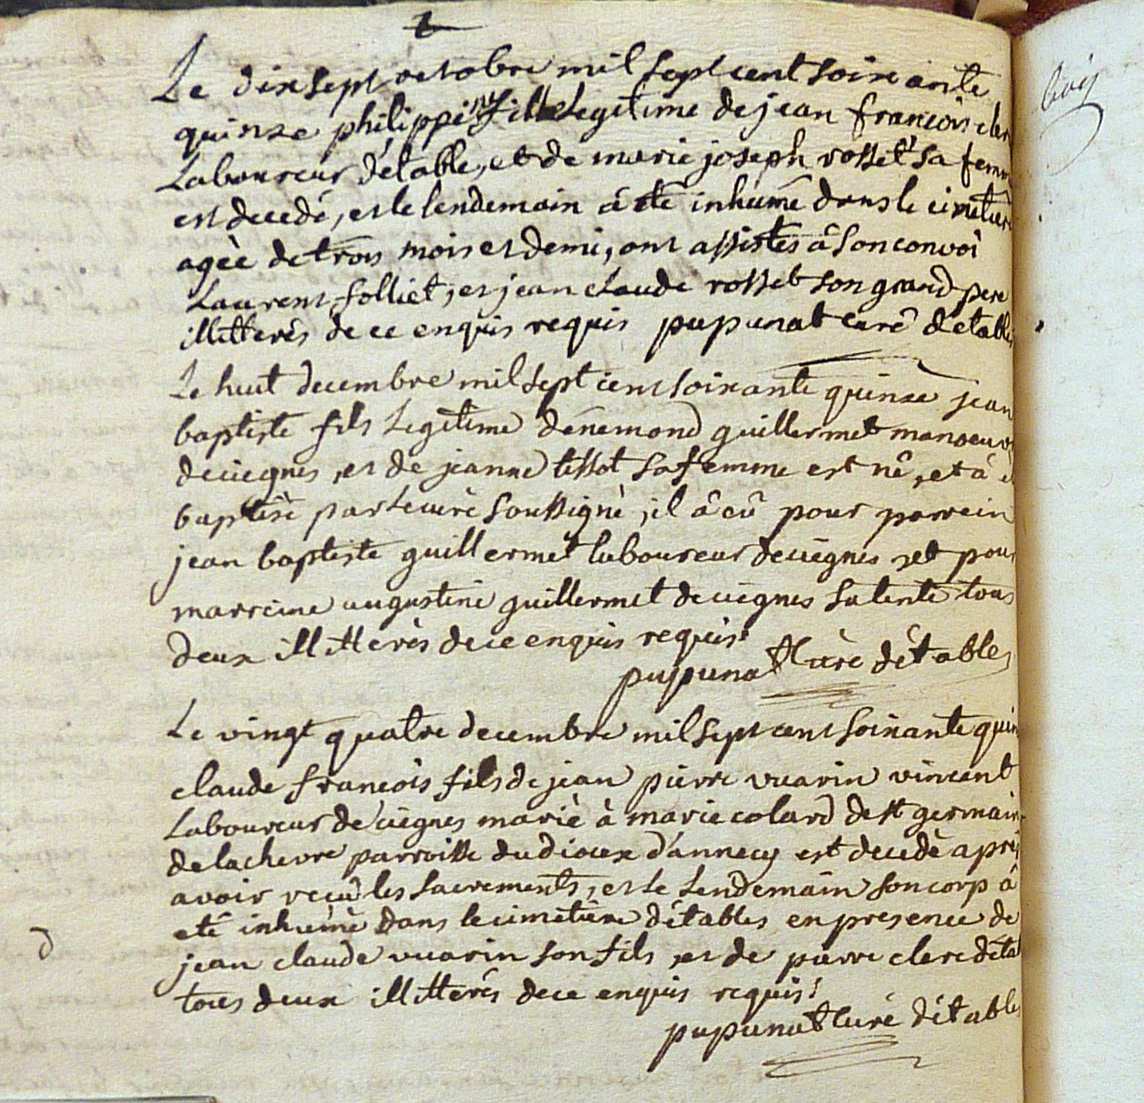 Le dix sept octobre mil sept cent soixante
quinze philippine fille Legitime de jean francois cler
Laboureur détable, et de marie joseph rosset sa femm
est decedé, et le lendemain â été inhumé dans le cimetier
agée de trois mois et demi, ont assistés â son convoi
Laurent folliet, et jean claude rosset son grand pere
illitterés de ce enquis requis pupunat curé détables
Le huit decembre mil sept cent soixante quinze jean
baptiste fils Legitime dénemond guillermet manoeuv
de ciegnes, et de jeanne tissot sa femme est né, et à é
baptisé par le curé soussigné, il â eû pour parrein
jean baptiste guillermet laboureur de ciegnes, et pour
marreine augustine guillermet de ciegnes sa tente tous
deux illitterés de ce enquis requis!
pupunat curé détables
Le vingt quatre decembre mil sept cent soixante quin
claude francois fils de jean pierre vuarin vincent
Laboureur de ciegnes marié à marie colard de st germain
de la chevre parroisse du dioux d'annecy est decedé aprés
avoir reçu les sacrements, et le Lendemain son corp â
eté inhumé dans le cimetiere détables en presence de
d
jean claude vuarin son fils, et de pierre clerc déta
tous deux illitterés de ce enquis requis!
pupunat curé détables